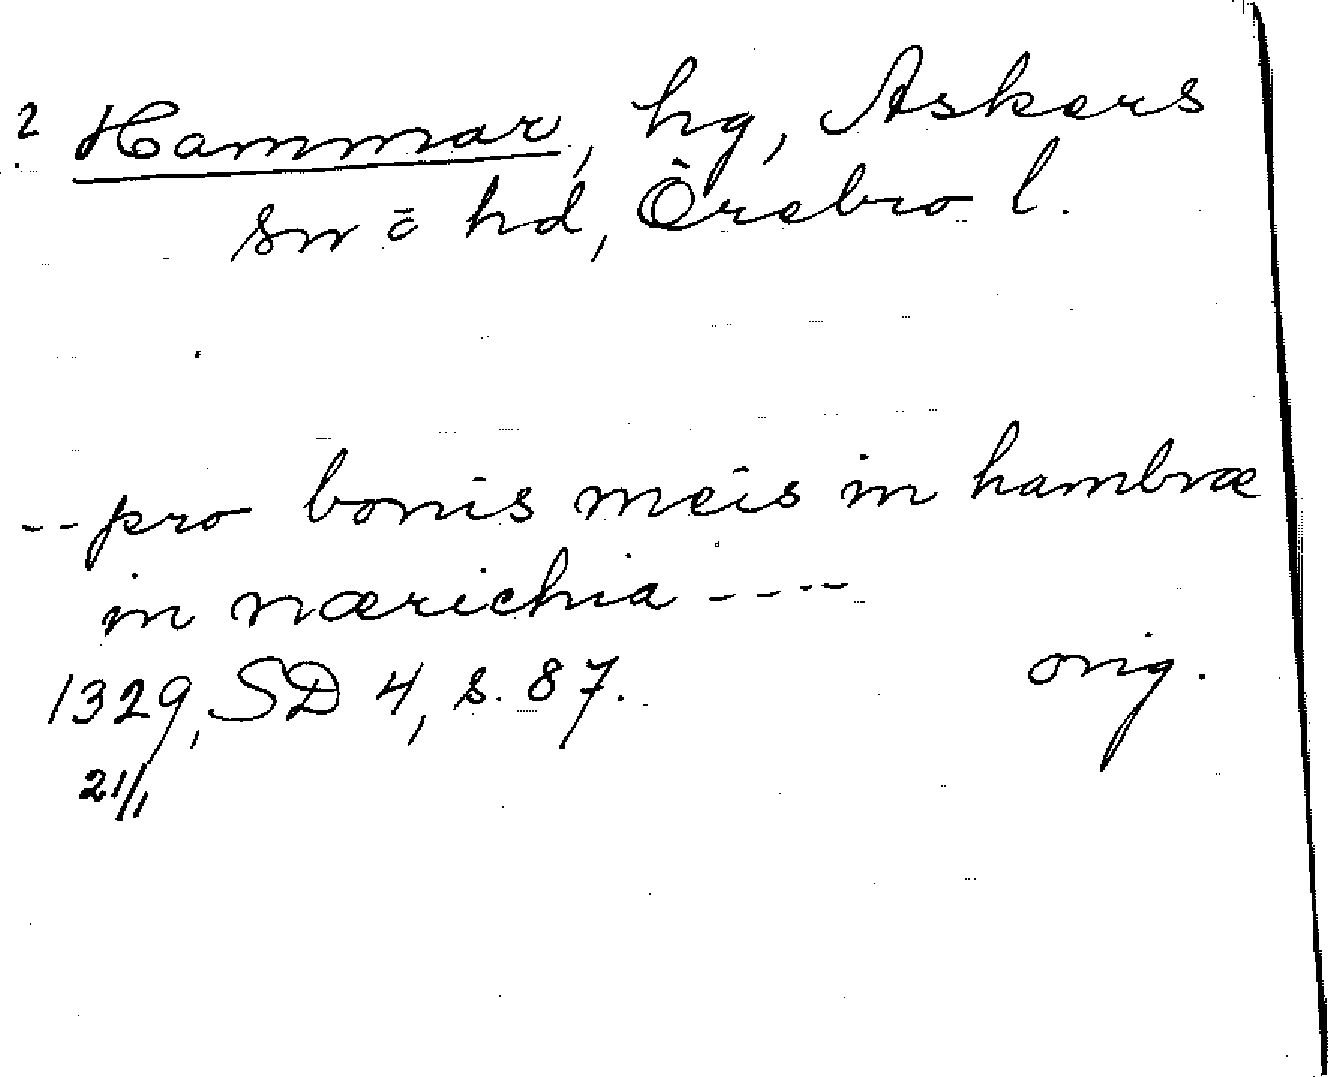 ? Hammar, hg, Askers
sn o hd, Örebro l.
-- pro bonis meis in hambræ
in nærichia ----
1329, SD 4, s. 87. orig.
21/1